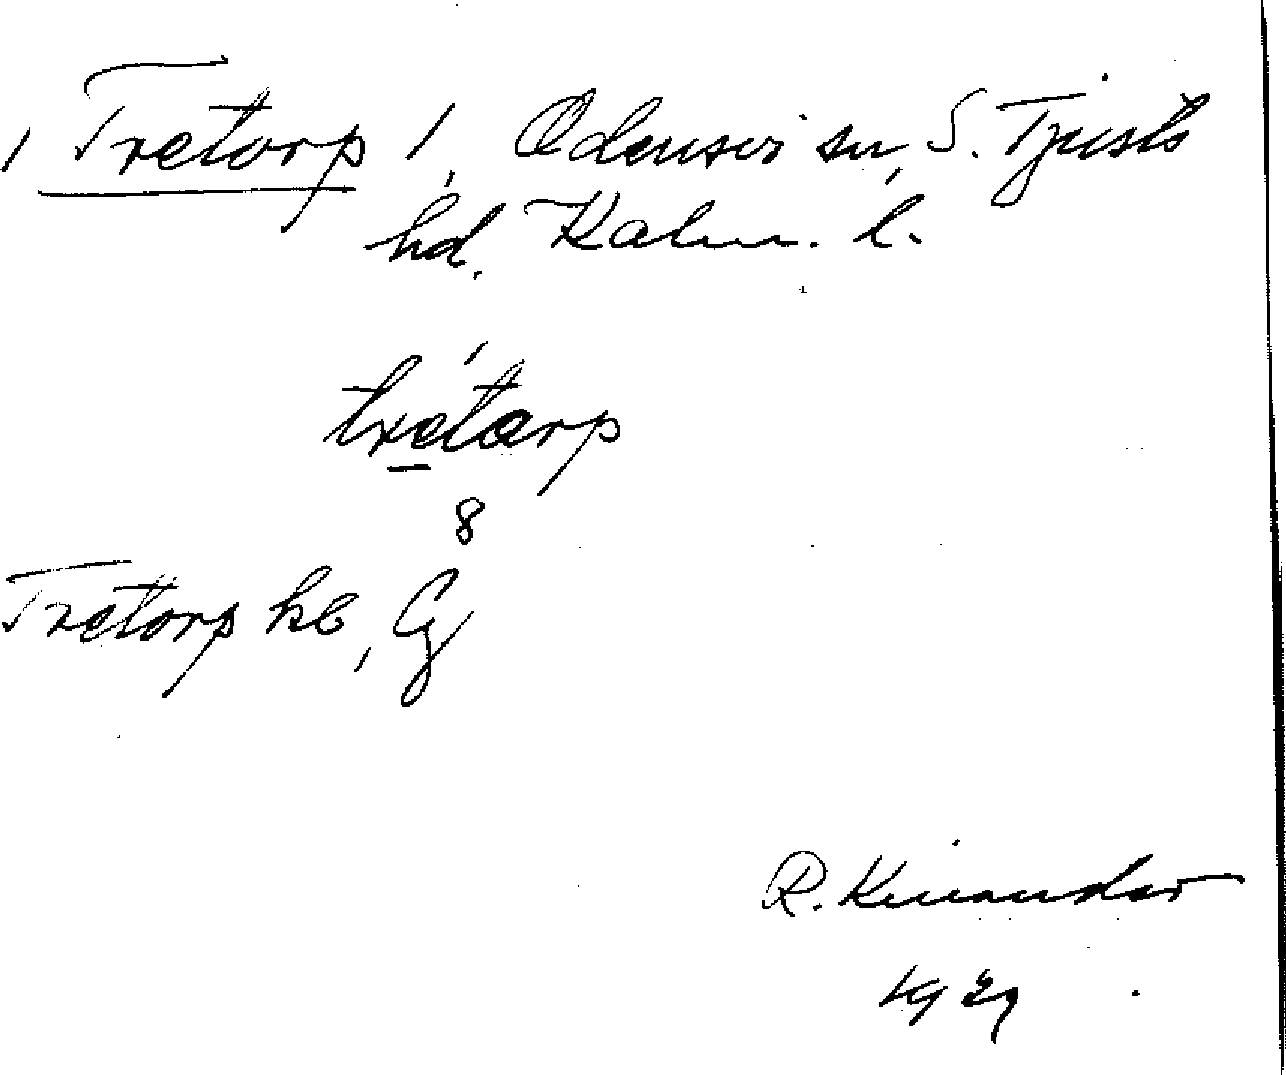 Tretorp 1, Odensvi sn, S. Tjusts
hd. Kalm. l.
tretorp
8
Tretorp kb, Cg
R. Kinander
1929